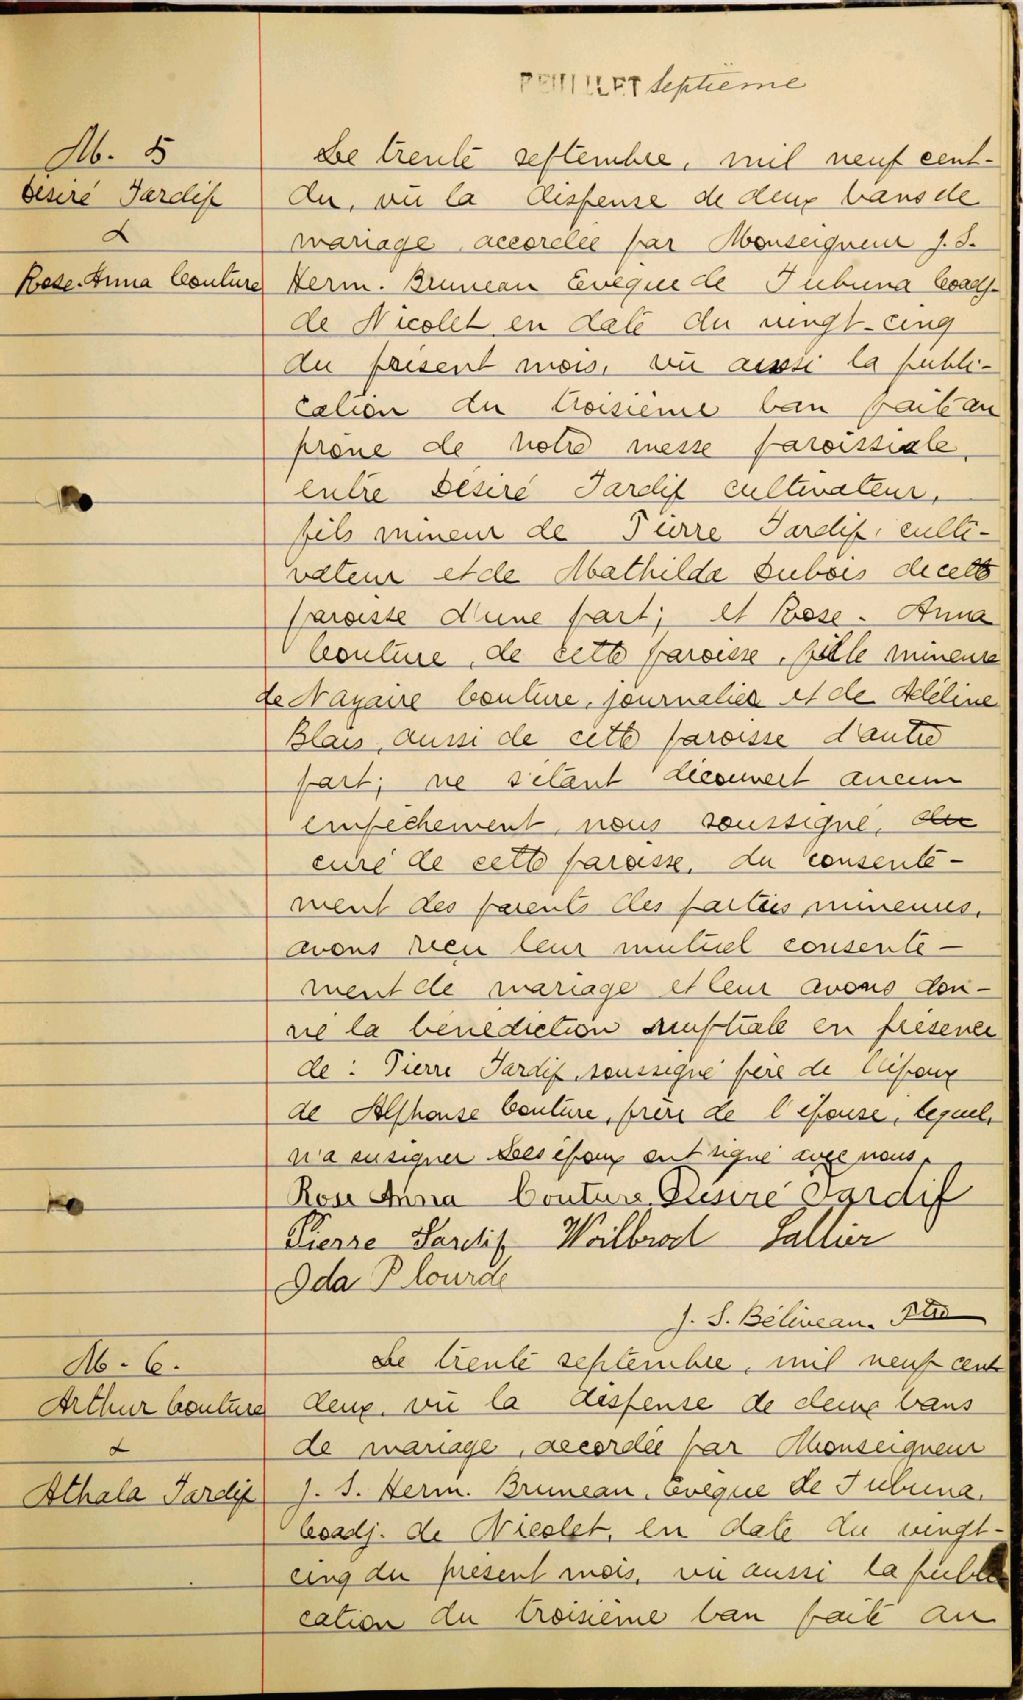 FEUILLET septième
M. 5
Désiré Tardif
&
Rose-Anna Couture
Le trente septembre, mil neuf cent-
du, vû la dispense de deux bans de
mariage, accordée par Monseigneur J. S.
Herm. Bruneau Evêque de Tubuna Coadj.
de Nicolet en date du vingt-cinq
du présent mois, vû aussi la publi-
cation du troisième ban faite au
prône de notre messe paroissiale,
entre Désiré Tardif cultivateur,
fils mineur de Pierre Tardif, culti-
vateur et de Mathilda Dubois de cette
paroisse d'une part; et Rose-Anna
Couture, de cette paroisse, fille mineure
de Nazaire Couture, journalier et de Adéline
Blais, aussi de cette paroisse d'autre
part; ne s'étant découvert aucun
empêchement, nous soussigné,
curé de cette paroisse, du consente-
ment des parents des parties mineures,
avons reçu leur mutuel consente-
ment de mariage et leur avons don-
né la bénédiction nuptiale en présence
de: Pierre Tardif, soussigné père de l'époux
de Alphonse Couture, frère de l'épouse, lequel,
n'a su signer Les époux ont signé avec nous.
Rose Anna Couture, Désiré Tardif
Pierre Tardif Woilbrod Lallier
Ida Plourde
J. S. Béliveau. Ptre
M. 6.
Arthur Couture
&
Athala Tardif
Le trente septembre, mil neuf cent
deux, vû la dispense de deux bans
de mariage, accordée par Monseigneur
J. S. Herm. Bruneau, Evêque de Tubuna,
Coadj. de Nicolet, en date du vingt-
cinq du présent mois, vû aussi la publi
cation du troisième ban faite au